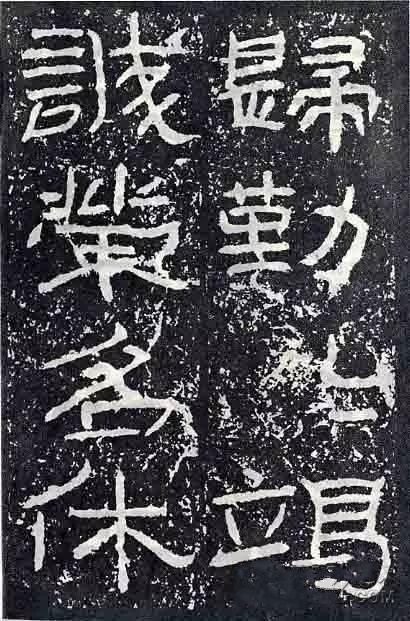 歸勤竭
誠榮名休